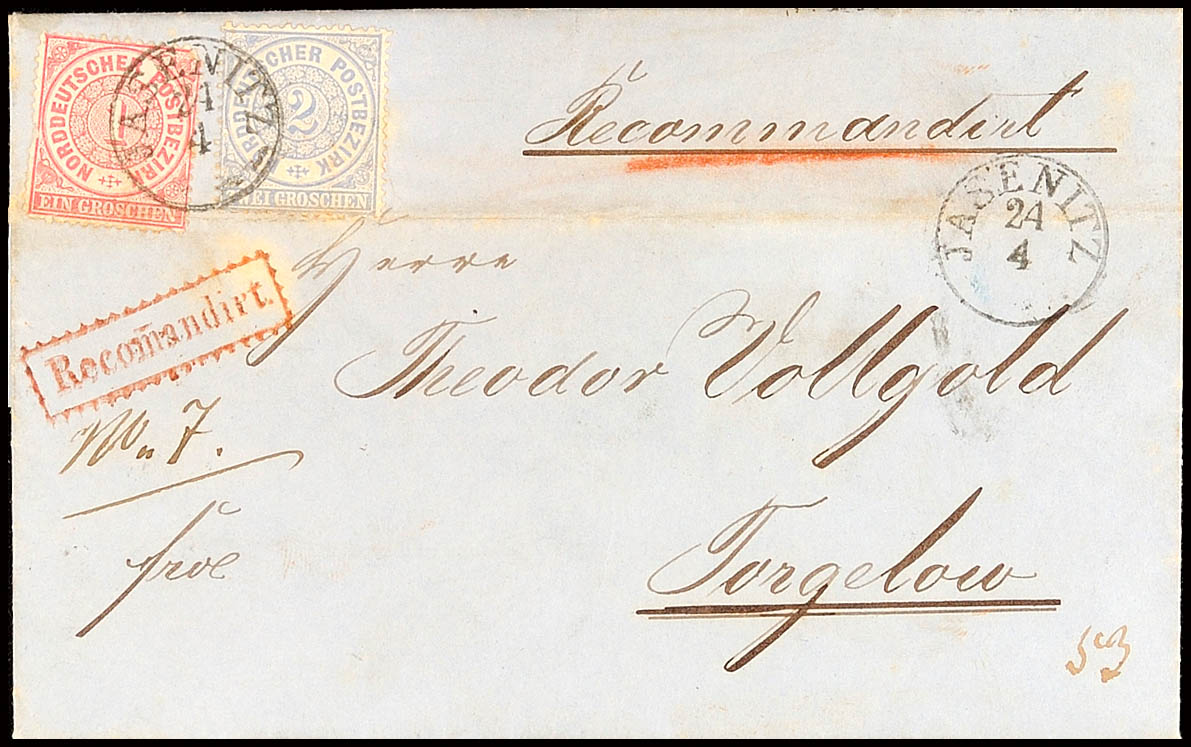 NORDDEUTSCHER POSTBEZIRK
1
EIN GROSCHEN
NORDDEUTSCHER POSTBEZIRK
2
ZWEI GROSCHEN
JASENITZ
24
4
Recommandirt
JASENITZ
24
4
Herrn
Theodor Vollgold
Torgelow
Recomandirt
No. 7.